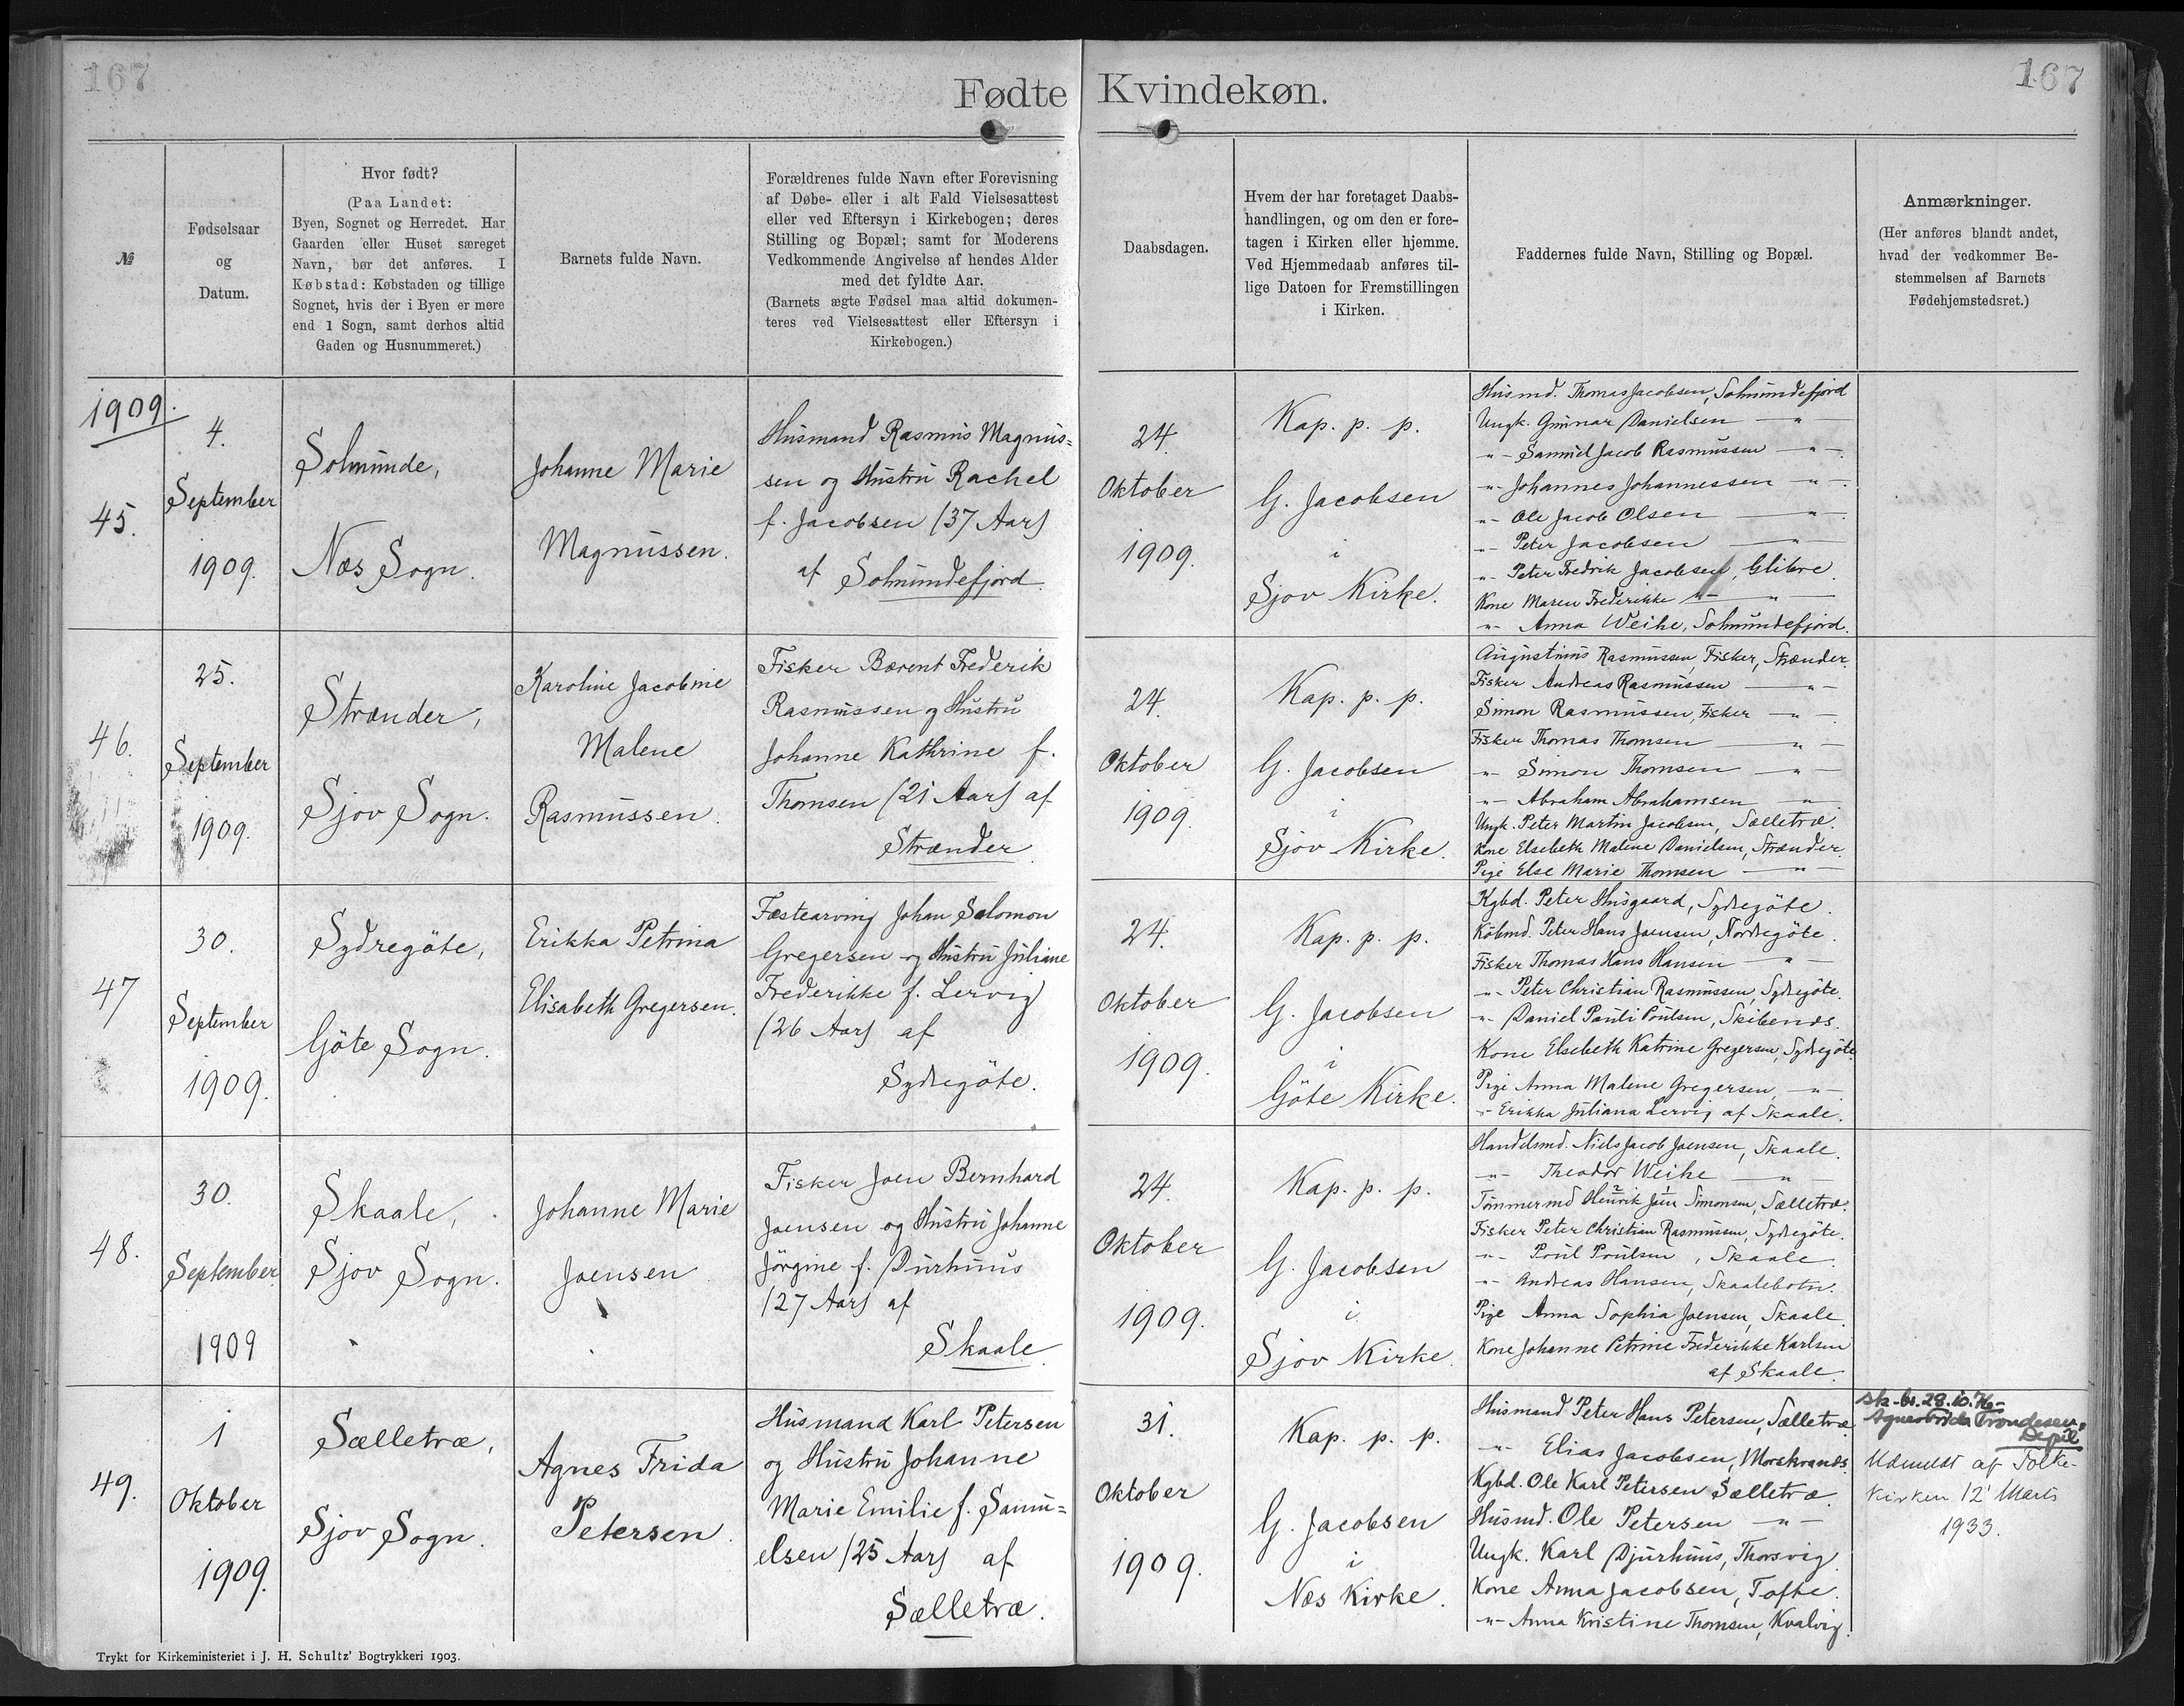 167
Fødte Kvindekøn.
167
№
Fødselsaar
og
Datum.
Hvor født?
(Paa Landet:
Byen, Sognet og Herredet. Har
Gaarden eller Huset særeget
Navn, bør det anføres. I
Købstad: Købstaden og tillige
Sognet, hvis der i Byen er mere
end 1 Sogn, samt derhos altid
Gaden og Husnummeret.)
Barnets fulde Navn.
Forældrenes fulde Navn efter Forevisning
af Døbe- eller i alt Fald Vielsesattest
eller ved Eftersyn i Kirkebogen; deres
Stilling og Bopæl; samt for Moderens
Vedkommende Angivelse af hendes Alder
med det fyldte Aar.
(Barnets ægte Fødsel maa altid dokumen-
teres ved Vielsesattest eller Eftersyn i
Kirkebogen.)
Daabsdagen.
Hvem der har foretaget Daabs-
handlingen, og om den er fore-
tagen i Kirken eller hjemme.
Ved Hjemmedaab anføres til-
lige Datoen for Fremstillingen
i Kirken.
Faddernes fulde Navn, Stilling og Bopæl.
Anmærkninger.
(Her anføres blandt andet,
hvad der vedkommer Be-
stemmelsen af Barnets
Fødehjemstedsret.)
1909.
45.
4.
September
1909.
Solmunde,
Næs Sogn.
Johanne Marie
Magnussen.
Husmand Rasmus Magnus=
sen og Hustru Rachel
f. Jacobsen (37 Aar)
af Solmundefjord.
24.
Oktober
1909.
Kap. p. p.
G. Jacobsen
i
Sjov Kirke.
Husmd. Thomas Jacobsen, Solmundefjord
Ungk. Gunnar Danielsen — " —
-"- Samuel Jacob Rasmussen — " —
-"- Johannes Johannessen — " —
-"- Ole Jacob Olsen — " —
-"- Peter Jacobsen — " —
-"- Peter Fredrik Jacobsen, Glibre.
Kone Maren Frederikke -"- — " —
-"- Anna Weihe, Solmundefjord.
46.
25.
September
1909.
Strænder,
Sjov Sogn.
Karoline Jacobine
Malene
Rasmussen.
Fisker Bærent Frederik
Rasmussen og Hustru
Johanne Kathrine f.
Thomsen (21 Aar) af
Strænder.
24.
Oktober
1909.
Kap. p. p.
G. Jacobsen
i
Sjov Kirke.
Augustinus Rasmussen, Fisker, Strænder.
Fisker Andreas Rasmussen — " —
Simon Rasmussen, Fisker — " —
Fisker Thomas Thomsen — " —
-"- Simon Thomsen — " —
-"- Abraham Abrahamsen — " —
Ungk. Peter Martin Jacobsen, Sælletræ.
Kone Elsebeth Malene Danielsen, Strænder.
Pige Else Marie Thomsen — " —
47
30.
September
1909.
Sydregöte,
Göte Sogn.
Erikka Petrina
Elisabeth Gregersen.
Fæstearving Johan Salomon
Gregersen og Hustru Juliane
Frederikke f. Lervig
(26 Aar) af
Sydregöte.
24.
Oktober
1909.
Kap. p. p.
G. Jacobsen
i
Göte Kirke.
Kgbd. Peter Husgaard, Sydregöte.
Købmd. Peter Hans Joensen, Nordregöte.
Fisker Thomas Hans Hansen — " —
-"- Peter Christian Rasmussen, Sydregöte.
-"- Daniel Pauli Poulsen, Skibenæs.
Kone Elsebeth Katrine Gregersen, Sydregöte
Pige Anna Malene Gregersen, — " —
-"- Erikka Juliana Lervig af Skaale.
48.
30.
September
1909
Skaale,
Sjov Sogn.
Johanne Marie
Joensen
Fisker Joen Bernhard
Joensen og Hustru Johanne
Jörgine f. Durhuus
(27 Aar) af
Skaale.
24.
Oktober
1909.
Kap. p. p.
G. Jacobsen
i
Sjov Kirke.
Handelsmd. Niels Jacob Joensen, Skaale.
-"- Theodor Weihe — " —
Tømmermd Henrik Jens Simonsen, Sælletræ.
Fisker Peter Christian Rasmussen, Sydregöte.
-"- Poul Poulsen, Skaale.
-"- Andreas Hansen, Skaalebotn.
Pige Anna Sophia Joensen, Skaale.
Kone Johanne Petrine Frederikke Karlsen
af Skaale.
49.
1
Oktober
1909.
Sælletræ,
Sjov Sogn.
Agnes Frida
Petersen.
Husmand Karl Petersen
og Hustru Johanne
Marie Emilie f. Samu=
elsen (25 Aar) af
Sælletræ.
31.
Oktober
1909.
Kap. p. p.
G. Jacobsen
i
Næs Kirke.
Husmand Peter Hans Petersen, Sælletræ
-"- Elias Jacobsen, Morskranes.
Kgbd. Ole Karl Petersen Sælletræ.
Husmd. Ole Petersen — " —
Ungk. Karl Djurhuus, Thorsvig.
Kone Anna Jacobsen, Tofte.
-"- Anna Kristine Thomsen, Kvalvig.
sk-br. 28.10.76-
Agnes Frida Trondesen,
Depil
Udmeldt af Folke-
kirken 12' Marts
1933.
Trykt for Kirkeministeriet i J. H. Schultz' Bogtrykkeri 1903.